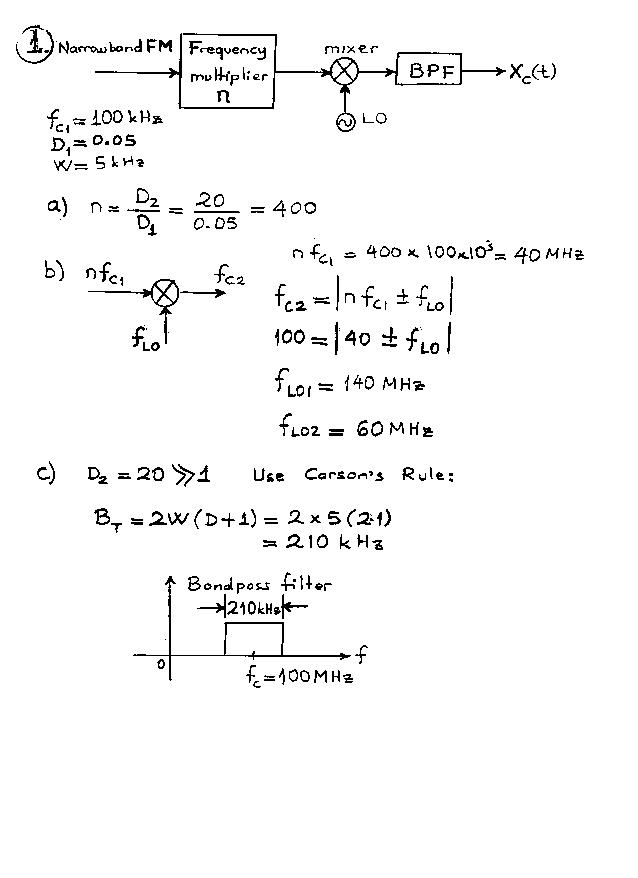 1. Narrowband FM
Frequency multiplier n
mixer
BPF
Xc(t)
LO
fc1 = 100 kHz
D1 = 0.05
W = 5 kHz
a) n = D2/D1 = 20/0.05 = 400
n fc1 = 400 x 100x10³ = 40 MHz
b) nfc1
fc2
fLO
fc2 = |n fc1 ± fLO|
100 = |40 ± fLO|
fLO1 = 140 MHz
fLO2 = 60 MHz
c) D2 = 20 ≫ 1 Use Carson's Rule:
BT = 2W(D+1) = 2 x 5 (21)
= 210 kHz
Bandpass filter
210kHz
f
0
fc = 100 MHz